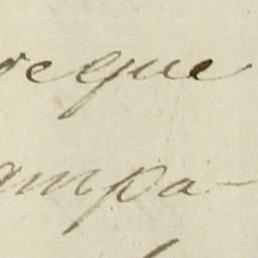 oeque
ampa-